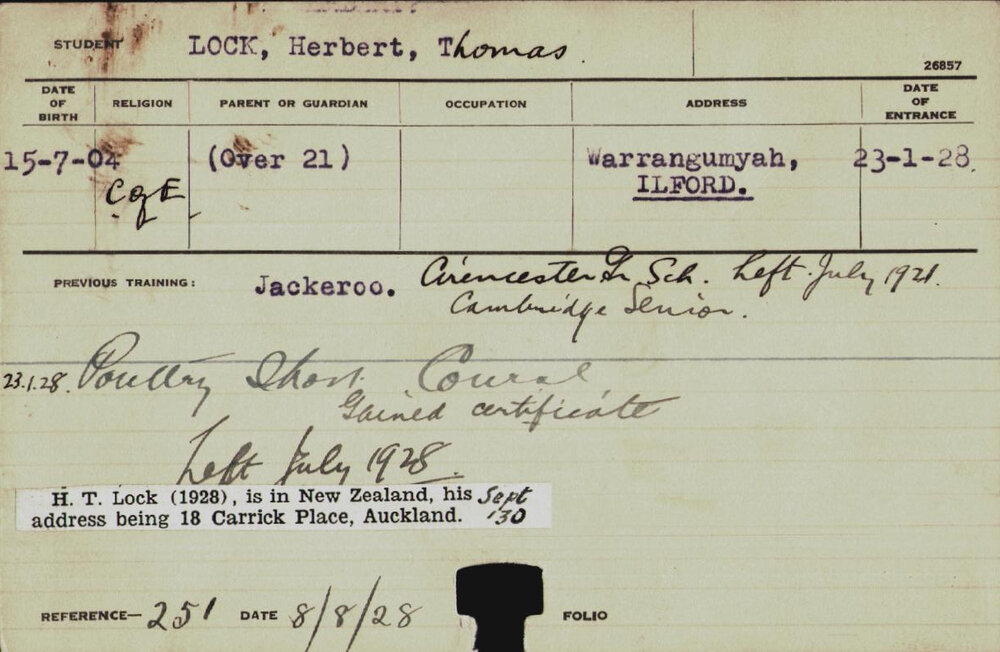 STUDENT LOCK, Herbert, Thomas.
26857
DATE OF BIRTH RELIGION PARENT OR GUARDIAN OCCUPATION ADDRESS DATE OF ENTRANCE
15-7-04 (Over 21) Warrangumyah, 23-1-28.
C of E ILFORD.
PREVIOUS TRAINING: Jackeroo. Cirencester Gr Sch. Left July 1921.
Cambridge Senior.
23.1.28. Poultry Short Course
Gained certificate
Left July 1928.
H. T. Lock (1928), is in New Zealand, his Sept
address being 18 Carrick Place, Auckland. '30
REFERENCE— 251 DATE 8/8/28 FOLIO